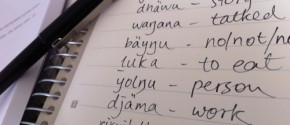 dhäwu – story
waŋana – talked
bäyŋu – no/not/n
ḻuka – to eat
yolŋu – person
djäma – work